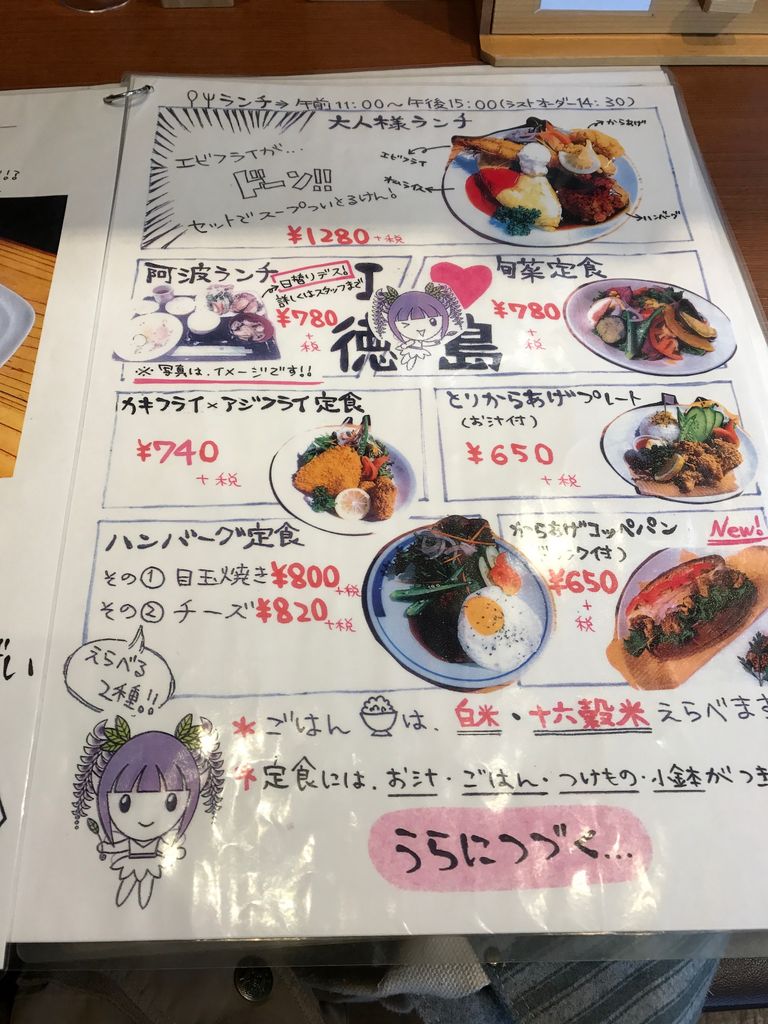 ランチ→午前11:00〜午後15:00(ラストオーダー14:30)
大人様ランチ
エビフライが…
ドーン!!
セットでスープついとるけん!
¥1280+税
からあげ
エビフライ
ハンバーグ
阿波ランチ
日替りデス!
詳しくはスタッフまで
¥780
+税
※写真は、イメージです!!
I
徳島
旬菜定食
¥780
+税
カキフライ×アジフライ定食
¥740
+税
とりからあげプレート
(お汁付)
¥650
+税
ハンバーグ定食
その① 目玉焼き¥800+税
その② チーズ¥820+税
からあげコッペパン
New!
ク付)
¥650
+税
えらべる
2種!!
*ごはんは、白米・十六穀米えらべます
*定食には、お汁・ごはん・つけもの・小鉢がつ
うらにつづく…